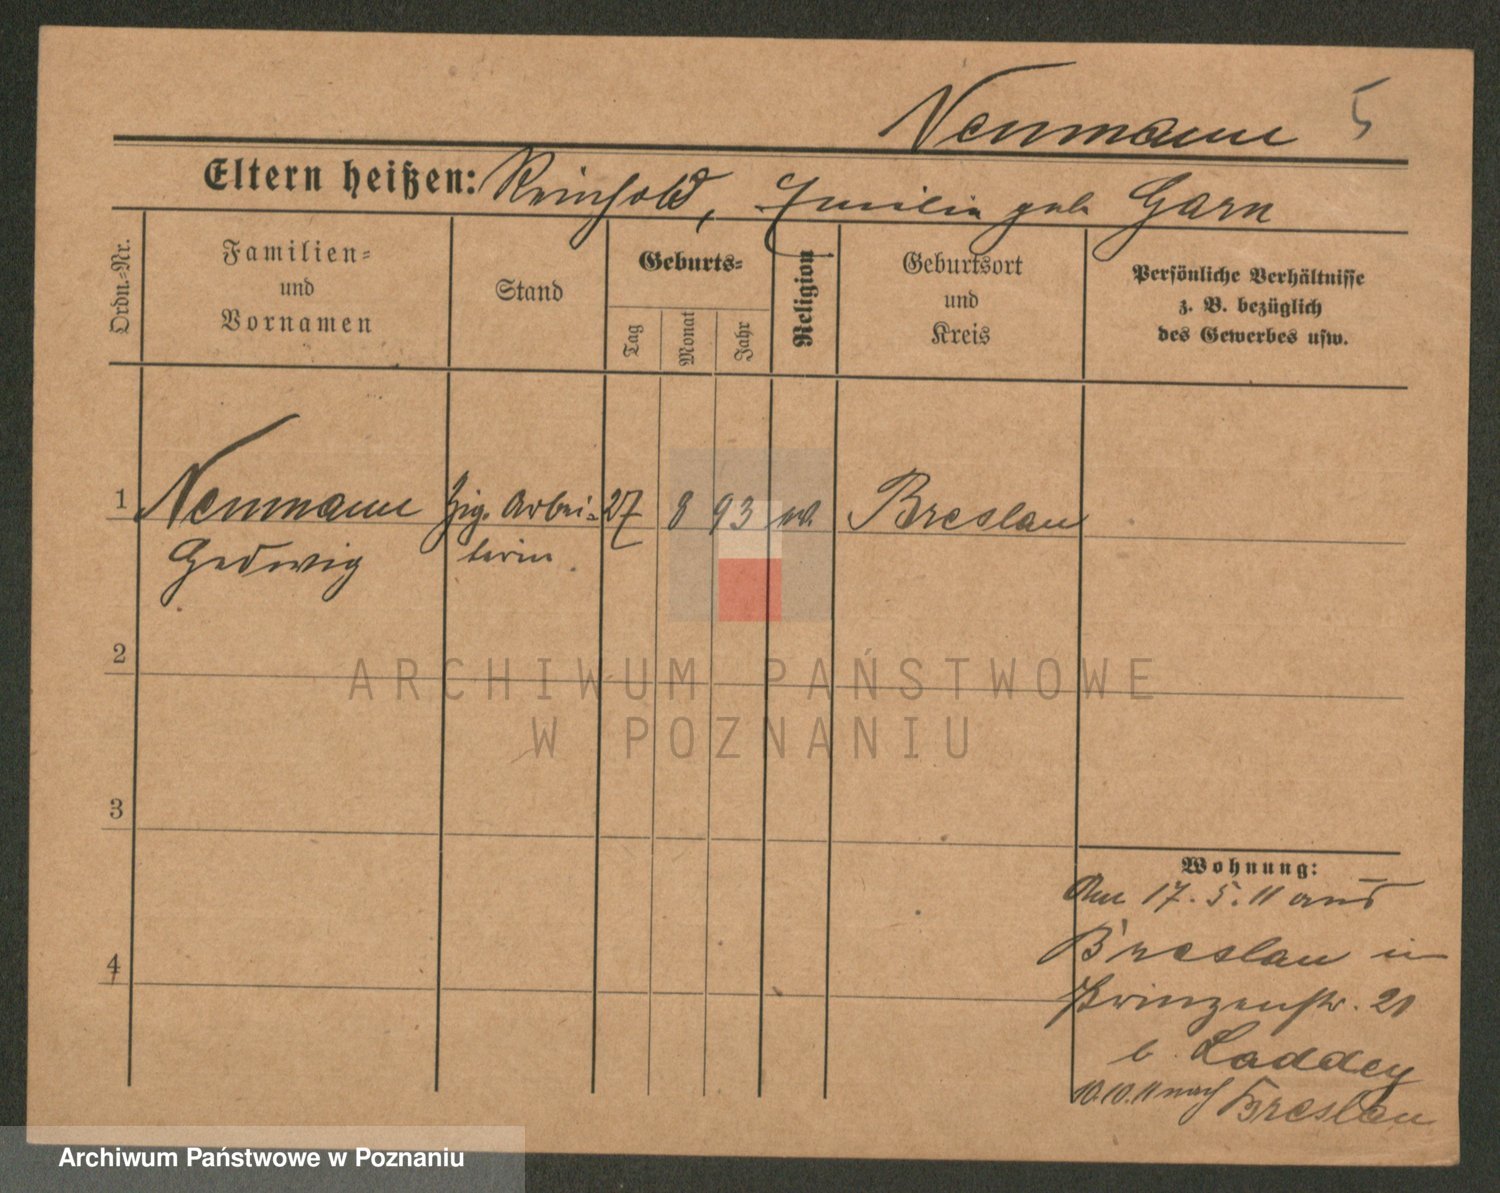 Neumann 5
Eltern heißen: Reinhold, Emilie geb Garn
Ordn.-Nr.
Familien-
und
Vornamen
Stand
Geburts-
Tag
Monat
Jahr
Religion
Geburtsort
und
Kreis
Persönliche Verhältnisse
z. B. bezüglich
des Gewerbes usw.
1 Neumann Zig. Arbei- 27 8 93 Breslau
Hedwig terin
2
ARCHIWUM PAŃSTWOWE
W POZNANIU
3
Wohnung:
Am 17. 5. 11 aus
Breslau in
4
Prinzenstr. 21
b. Laddey
10.10.11 nach Breslau
Archiwum Państwowe w Poznaniu